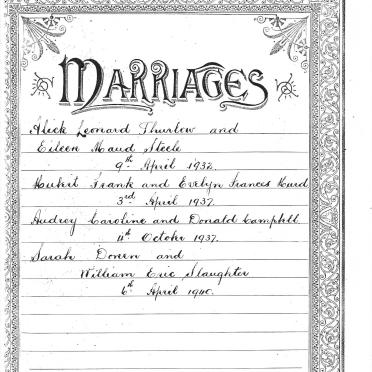 MARRIAGES
Alick Leonard Thurlow and
Eileen Maud Steele
9th April 1932.
Frank and Evelyn Frances Hurd
3rd April 1937.
Audrey Caroline and Donald Campbell
11th October 1937.
Sarah Doreen and
William Eric Slaughter
6th April 1940.